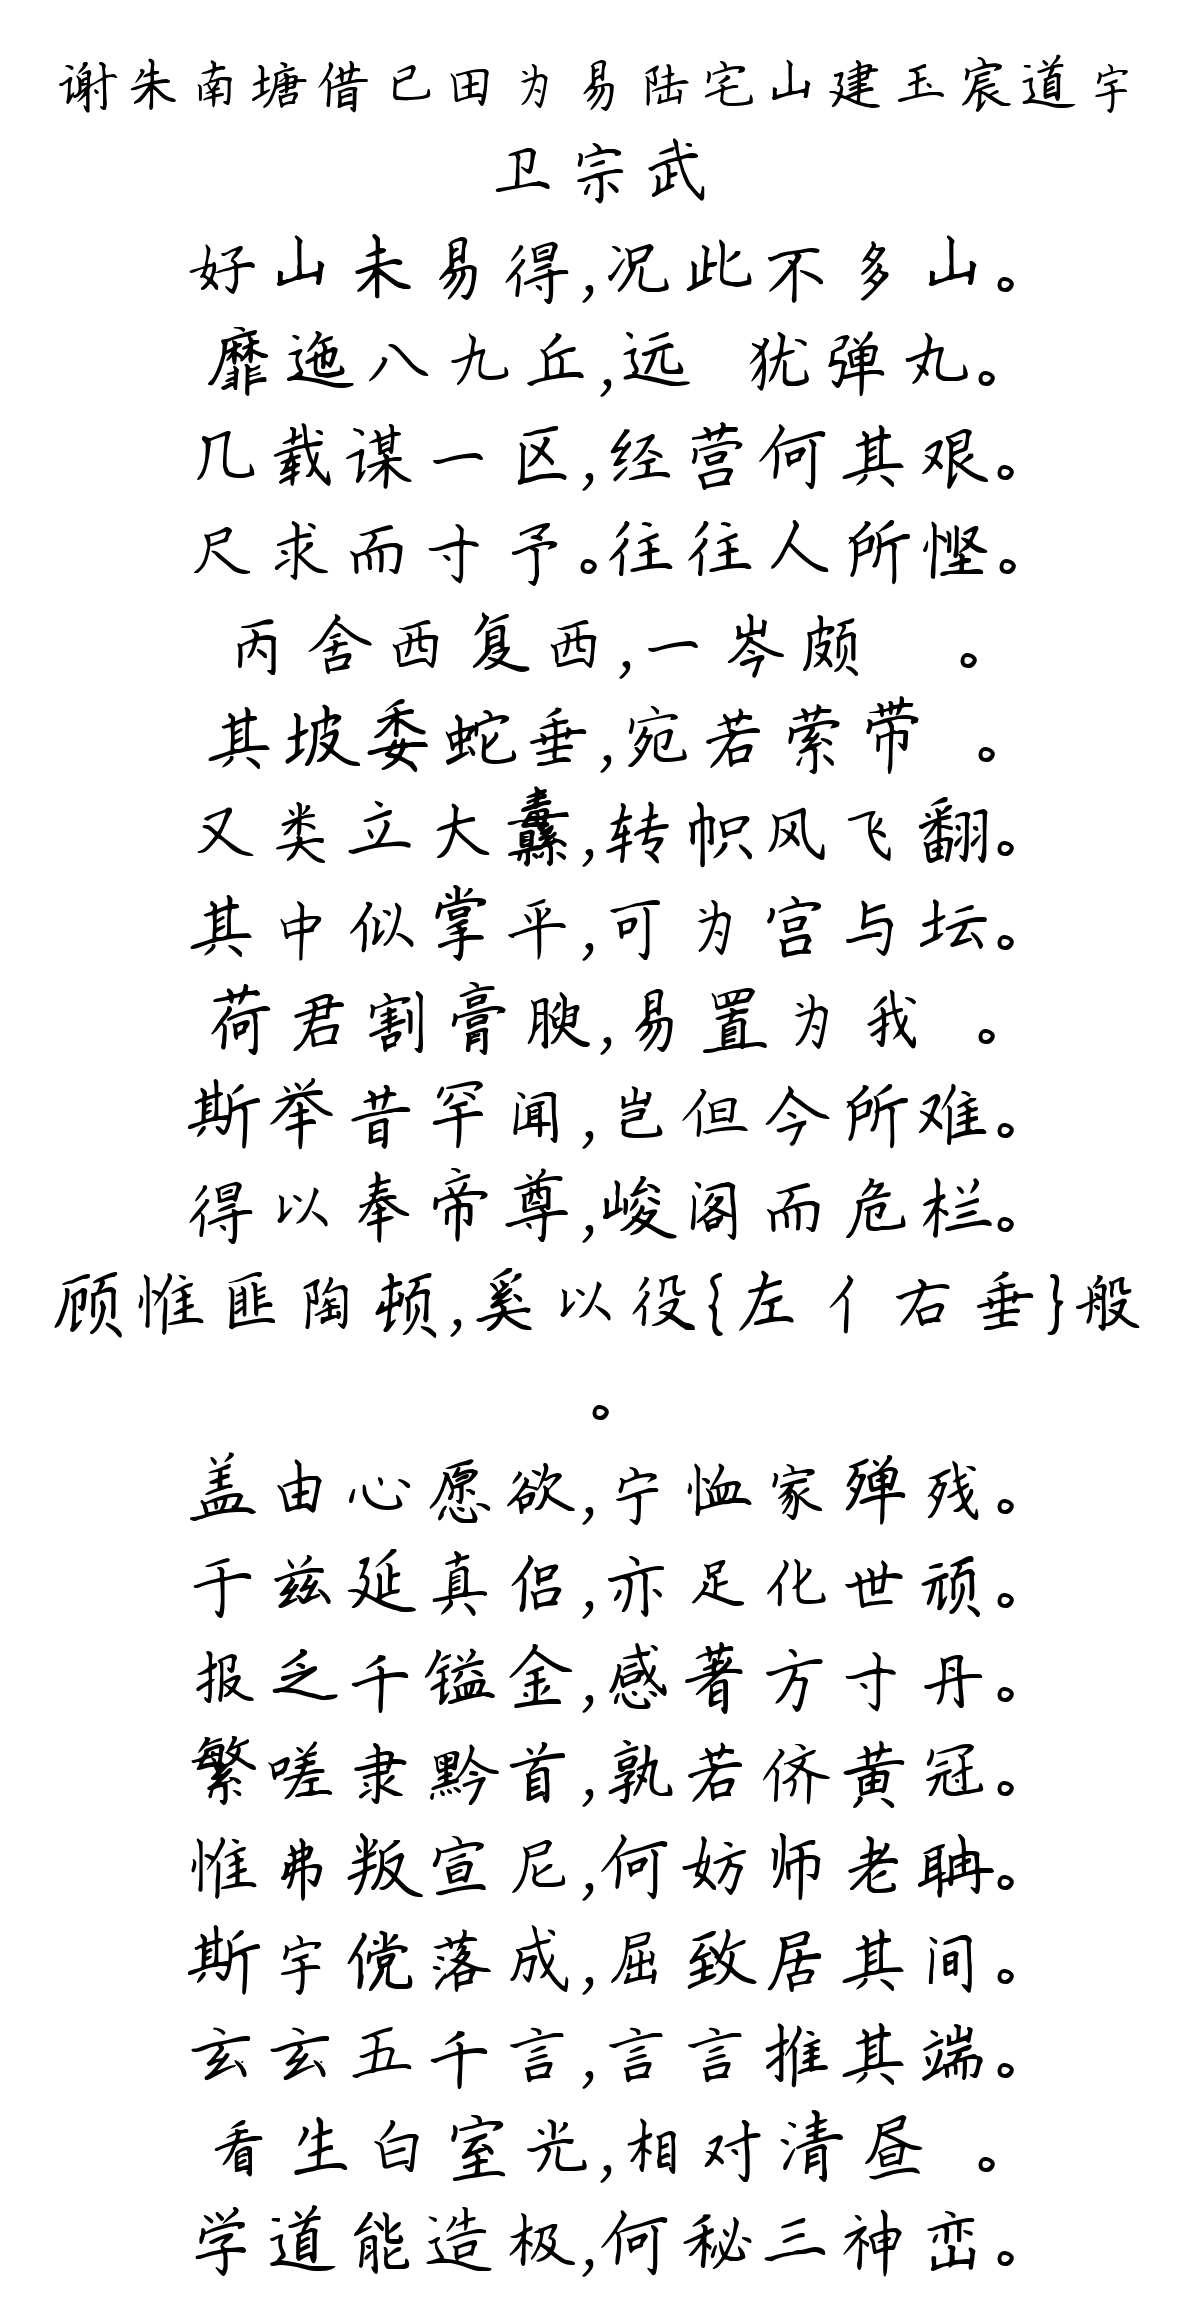 谢朱南塘借已田为易陆宅山建玉宸道宇
卫宗武
好山未易得,况此不多山。
靡迤八九丘,远 犹弹丸。
几载谋一区,经营何其艰。
尺求而寸予。往往人所悭。
丙舍西复西,一岑颇 。
其坡委蛇垂,宛若萦带 。
又类立大纛,转帜风飞翻。
其中似掌平,可为宫与坛。
荷君割膏腴,易置为我 。
斯举昔罕闻,岂但今所难。
得以奉帝尊,峻阁而危栏。
顾惟匪陶顿,奚以役{左亻右垂}般
。
盖由心愿欲,宁恤家殚残。
于兹延真侣,亦足化世顽。
报乏千镒金,感著方寸丹。
繁嗟隶黔首,孰若侪黄冠。
惟弗叛宣尼,何妨师老聃。
斯宇傥落成,屈致居其间。
玄玄五千言,言言推其端。
看生白室光,相对清昼 。
学道能造极,何秘三神峦。